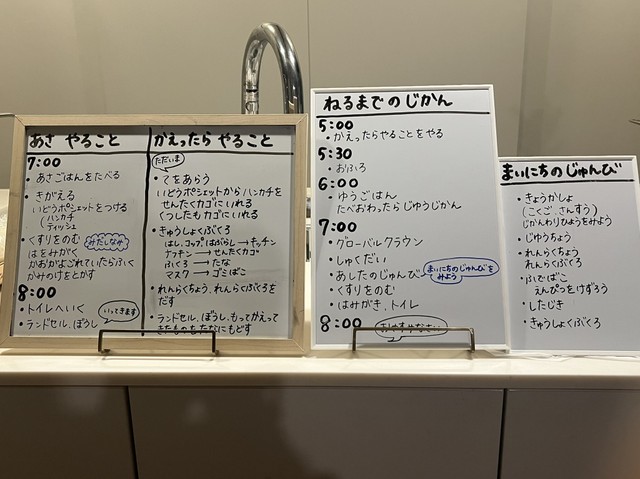 あさ やること
7:00
・あさごはんをたべる
・きがえる
いどうポシェットをつける
(ハンカチ
ティッシュ
・くすりをのむ
みだしなみ
はをみがく
かおがよごれていたらふく
かみのけをとかす
8:00
・トイレへいく
いってきます
・ランドセル、ぼうし
かえったら やること
ただいま
・てをあらう
いどうポシェットからハンカチを
せんたくカゴにいれる
くつしたもカゴにいれる
・きゅうしょくぶくろ
はし、コップ、はぶらし→キッチン
ナフキン→せんたくカゴ
ふくろ→たな
マスク→ゴミばこ
・れんらくちょう、れんらくぶくろを
だす
・ランドセル、ぼうし、もってかえって
きたものをたなにもどす
ねるまでのじかん
5:00
・かえったらやることをやる
5:30
・おふろ
6:00
・ゆうごはん
たべおわったらじゆうじかん
7:00
・グローバルクラウン
・しゅくだい
・あしたのじゅんび
まいにちのじゅんびを
みよう
・くすりをのむ
・はみがき、トイレ
8:00
おやすみなさい
まいにちのじゅんび
・きょうかしょ
(こくご、さんすう)
じかんわりひょうをみよう
・じゆうちょう
・れんらくちょう
れんらくぶくろ
・ふでばこ
えんぴつをけずろう
・したじき
・きゅうしょくぶくろ